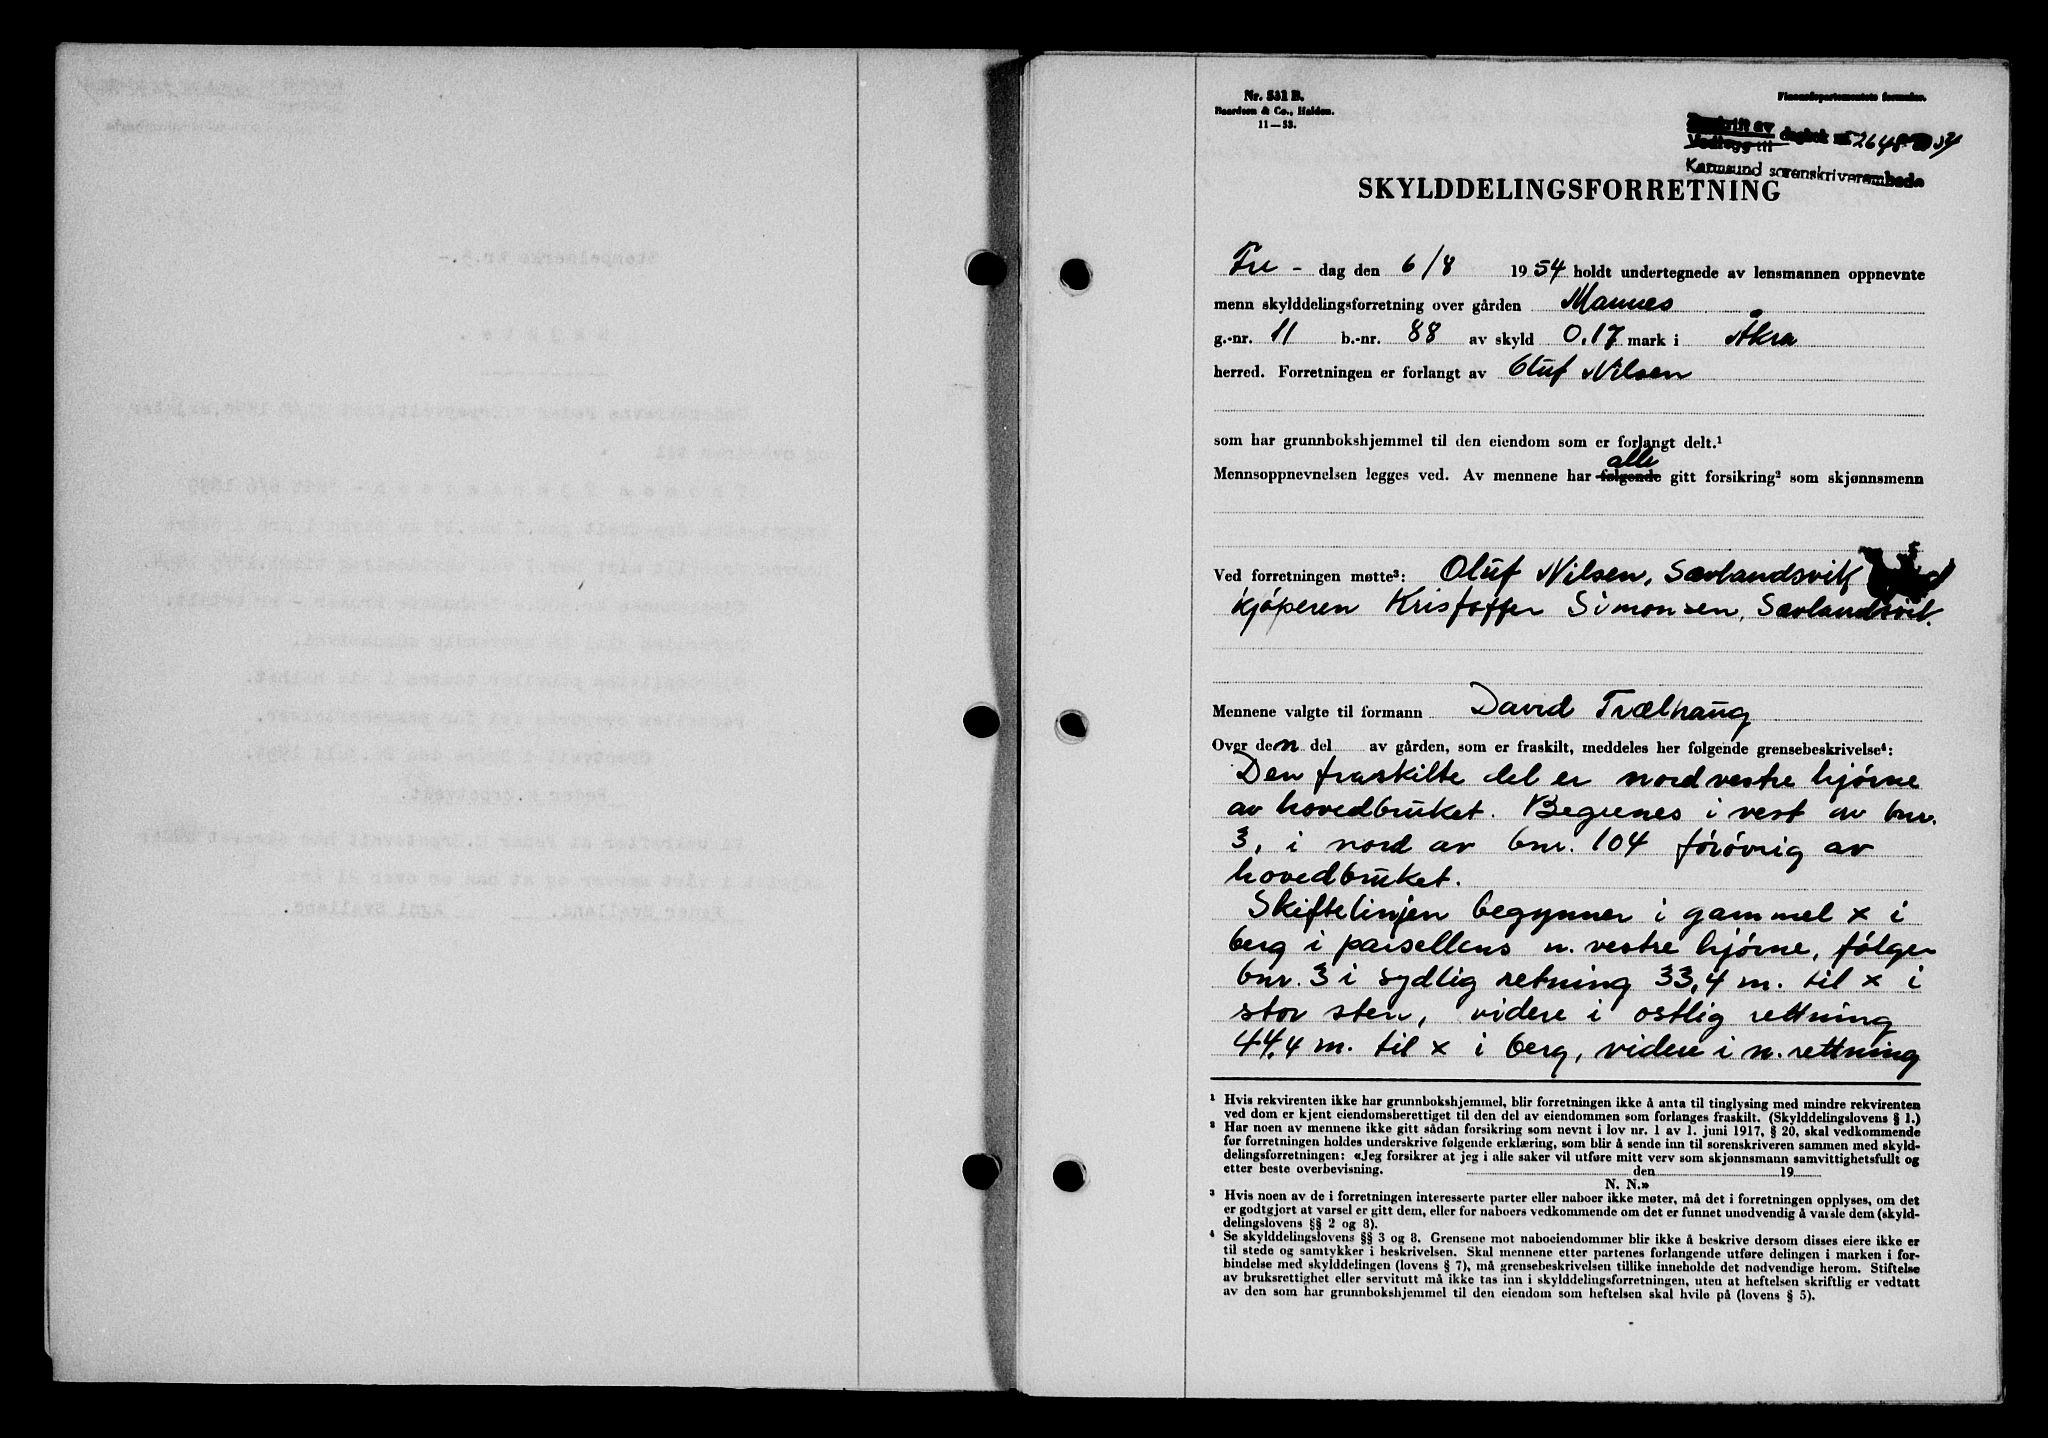 Nr. 531 B.
Baardsen & Co., Halden.
11—53.
Finansdepartementets formular.
Avskrift av
Vedlegg til dagbok nr. 2648 19 54
Karmsund sorenskriverembede
SKYLDDELINGSFORRETNING
Fre - dag den 6/8 1954 holdt undertegnede av lensmannen oppnevnte
menn skylddelingsforretning over gården Mannes
g.-nr. 11 b.-nr. 88 av skyld 0,17 mark i Åkra
herred. Forretningen er forlangt av Oluf Nilsen
som har grunnbokshjemmel til den eiendom som er forlangt delt.¹
alle
Mennsoppnevnelsen legges ved. Av mennene har følgende gitt forsikring² som skjønnsmenn
Ved forretningen møtte³: Oluf Nilsen, Sævlandsvik
kjøperen Kristoffer Simonsen, Sævlandsvik.
Mennene valgte til formann David Trælhaug
Over den del av gården, som er fraskilt, meddeles her følgende grensebeskrivelse⁴:
Den fraskilte del er nordvestre hjørne
av hovedbruket. Begrenes i vest av bnr.
3, i nord av bnr. 104 forøvrig av
hovedbruket.
Skiftelinjen begynner i gammel x i
berg i parsellens n. vestre hjørne, følger
bnr. 3 i sydlig retning 33,4 m. til x i
stor sten, videre i ostlig rettning
44,4 m. til x i berg, videre i n. rettning
¹ Hvis rekvirenten ikke har grunnbokshjemmel, blir forretningen ikke å anta til tinglysing med mindre rekvirenten
ved dom er kjent eiendomsberettiget til den del av eiendommen som forlanges fraskilt. (Skylddelingslovens § 1.)
² Har noen av mennene ikke gitt sådan forsikring som nevnt i lov nr. 1 av 1. juni 1917, § 20, skal vedkommende
før forretningen holdes underskrive følgende erklæring, som blir å sende inn til sorenskriveren sammen med skyld-
delingsforretningen: «Jeg forsikrer at jeg i alle saker vil utføre mitt verv som skjønnsmann samvittighetsfullt og
etter beste overbevisning. den 19
N. N.»
³ Hvis noen av de i forretningen interesserte parter eller naboer ikke møter, må det i forretningen opplyses, om det
er godtgjort at varsel er gitt dem, eller for naboers vedkommende om det er funnet unødvendig å varsle dem (skyld-
delingslovens §§ 2 og 8).
⁴ Se skylddelingslovens §§ 3 og 8. Grensene mot naboeiendommer blir ikke å beskrive dersom disses eiere ikke er
til stede og samtykker i beskrivelsen. Skal mennene etter partenes forlangende utføre delingen i marken i for-
bindelse med skylddelingen (lovens § 7), må grensebeskrivelsen tillike inneholde det nødvendige herom. Stiftelse
av bruksrettighet eller servitutt må ikke tas inn i skylddelingsforretningen, uten at heftelsen skriftlig er vedtatt
av den som har grunnbokshjemmel til den eiendom som heftelsen skal hvile på (lovens § 5).